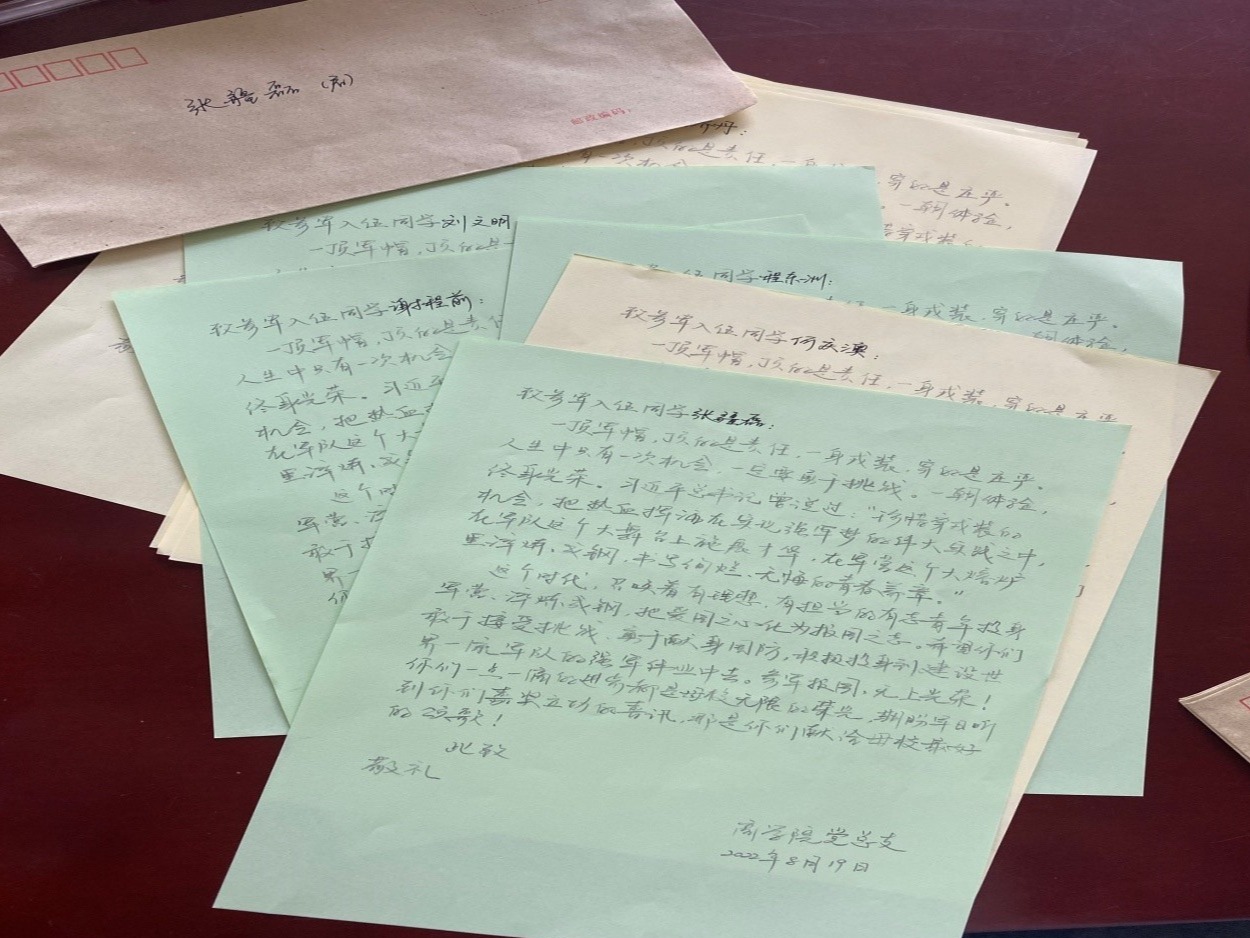 张 磊(启)
邮政编码:
丹:
的是责任,一身
穿的是庄严。
一次机
。一朝体验,
惜穿戎装的
致参军入伍同学刘文明
一顶军帽,顶的是
伍同学程东洲:
责任,一身戎装,穿的是庄严。
朝体验,
致参军入伍同学谢程前:
一顶军帽,顶的是责任
人生中只有一次机会
终身光荣。习近平
机会,把热血
在军队这个大
里淬炼成
这个时
军营、淬
敢于接
界一
你
致参军入伍同学何庆澳:
一顶军帽,顶的是责任,一身戎装,穿的是庄严
致参军入伍同学张 磊:
一顶军帽,顶的是责任,一身戎装,穿的是庄严。
人生中只有一次机会,一定要勇于挑战。一朝体验,
终身光荣。习近平总书记曾说过:“珍惜穿戎装的
机会,把热血挥洒在实现强军梦的伟大实践之中,
在军队这个大舞台上施展才华,在军营这个大熔炉
里淬炼成钢,书写绚烂、无悔的青春篇章。”
这个时代,召唤着有理想、有担当的有志青年投身
军营、淬炼成钢,把爱国之心化为报国之志。希望你们
敢于接受挑战、勇于献身国防,积极投身到建设世
界一流军队的强军伟业中去。参军报国,无上光荣!
你们一点一滴的进步都是母校无限的荣光,期盼早日听
到你们嘉奖立功的喜讯,那是你们献给母校最好
的颂歌!
此致
敬礼
商学院党总支
2022年8月19日